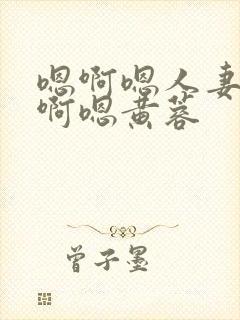 嗯啊嗯人妻
啊嗯黄蓉
曾子墨